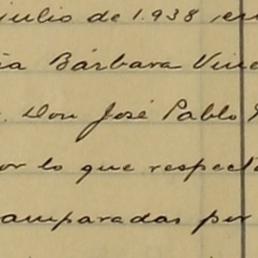 julio de 1.938, en
Bárbara Vin
Don José Pablo
or lo que respecta
amparadas por